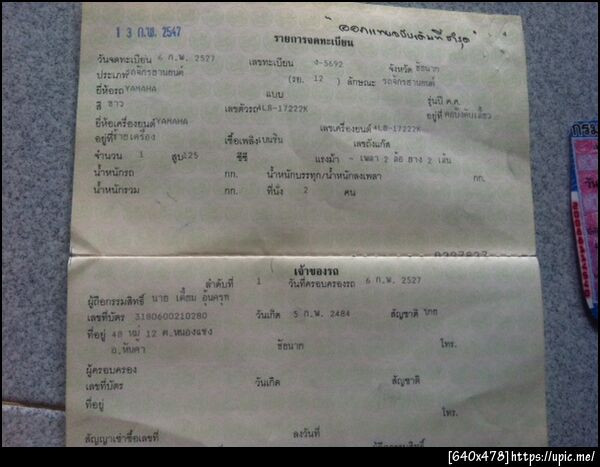 13 ก.พ. 2547
ออกแทนฉบับเดิมที่ชำรุด
รายการจดทะเบียน
วันจดทะเบียน 6 ก.พ. 2527 เลขทะเบียน ง-5692 จังหวัด ชัยนาท
ประเภท รถจักรยานยนต์ (รย. 12) ลักษณะ รถจักรยานยนต์
ยี่ห้อรถ YAMAHA แบบ รุ่นปี ค.ศ.
สี ขาว เลขตัวรถ 4L8-17222K อยู่ที่ คอบังคับเลี้ยว
ยี่ห้อเครื่องยนต์ YAMAHA เลขเครื่องยนต์ 4L8-17222K
อยู่ที่ ซ้ายเครื่อง เชื้อเพลิง เบนซิน เลขถังแก๊ส
จำนวน 1 สูบ 125 ซีซี แรงม้า - เพลา 2 ล้อ ยาง 2 เส้น
น้ำหนักรถ กก. น้ำหนักบรรทุก/น้ำหนักลงเพลา กก.
น้ำหนักรวม กก. ที่นั่ง 2 คน
เจ้าของรถ
ลำดับที่ 1 วันที่ครอบครองรถ 6 ก.พ. 2527
ผู้ถือกรรมสิทธิ์ นาย เตี้ยม อุ้นครุฑ
เลขที่บัตร 3180600210280 วันเกิด 5 ก.พ. 2484 สัญชาติ ไทย
ที่อยู่ 48 หมู่ 12 ต.หนองแซง
อ.หันคา ชัยนาท โทร.
ผู้ครอบครอง
เลขที่บัตร วันเกิด สัญชาติ
ที่อยู่
โทร.
สัญญาเช่าซื้อเลขที่ ลงวันที่
ผู้ถือกรรมสิทธิ์
[640x478]https://upic.me/